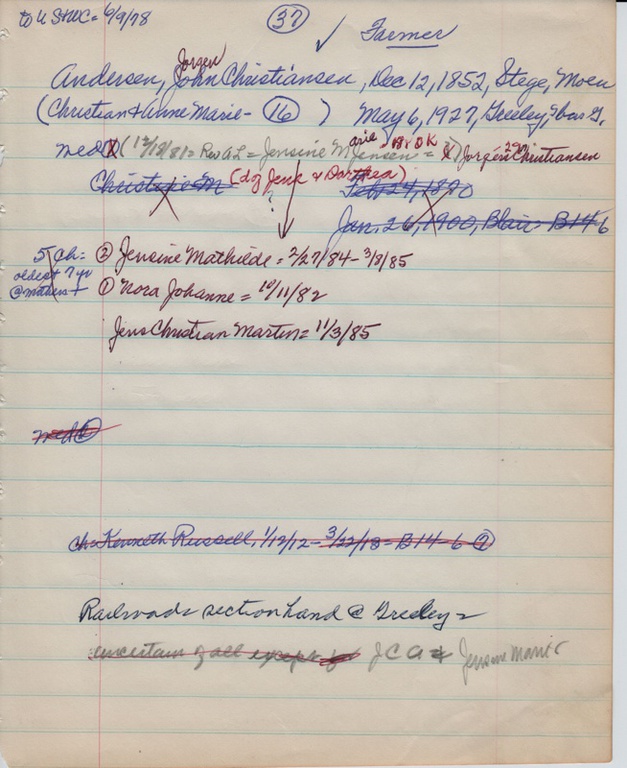 to US+WC = 6/9/78
37 ✓ Farmer
Jorgen
Andersen, John Christiansen, Dec 12, 1852, Stege, Moen
(Christian + Anne Marie - 16 ) May 6, 1927, Greeley,
med X (12/18/81 = Rev AL = Jensine Marie Jensen = 18 & DK) Jorgen Christiansen 29
Christie M (dg Jens + Dorthea) Feb 24, 1890
? Jan. 26, 1900, Blair B14-6
5 ch: ② Jensine Mathilde = 2/27/84 - 3/8/85
oldest 7 yr
@ mothers + ① Nora Johanne = 10/11/82
Jens Christian Martin = 11/3/85
med ②
ch: Kenneth Russell, 1/12/12 - 3/22/18 - B14-6 ②
Railroads section hand @ Greeley =
uncertain of all except JCA + Jensine Marie